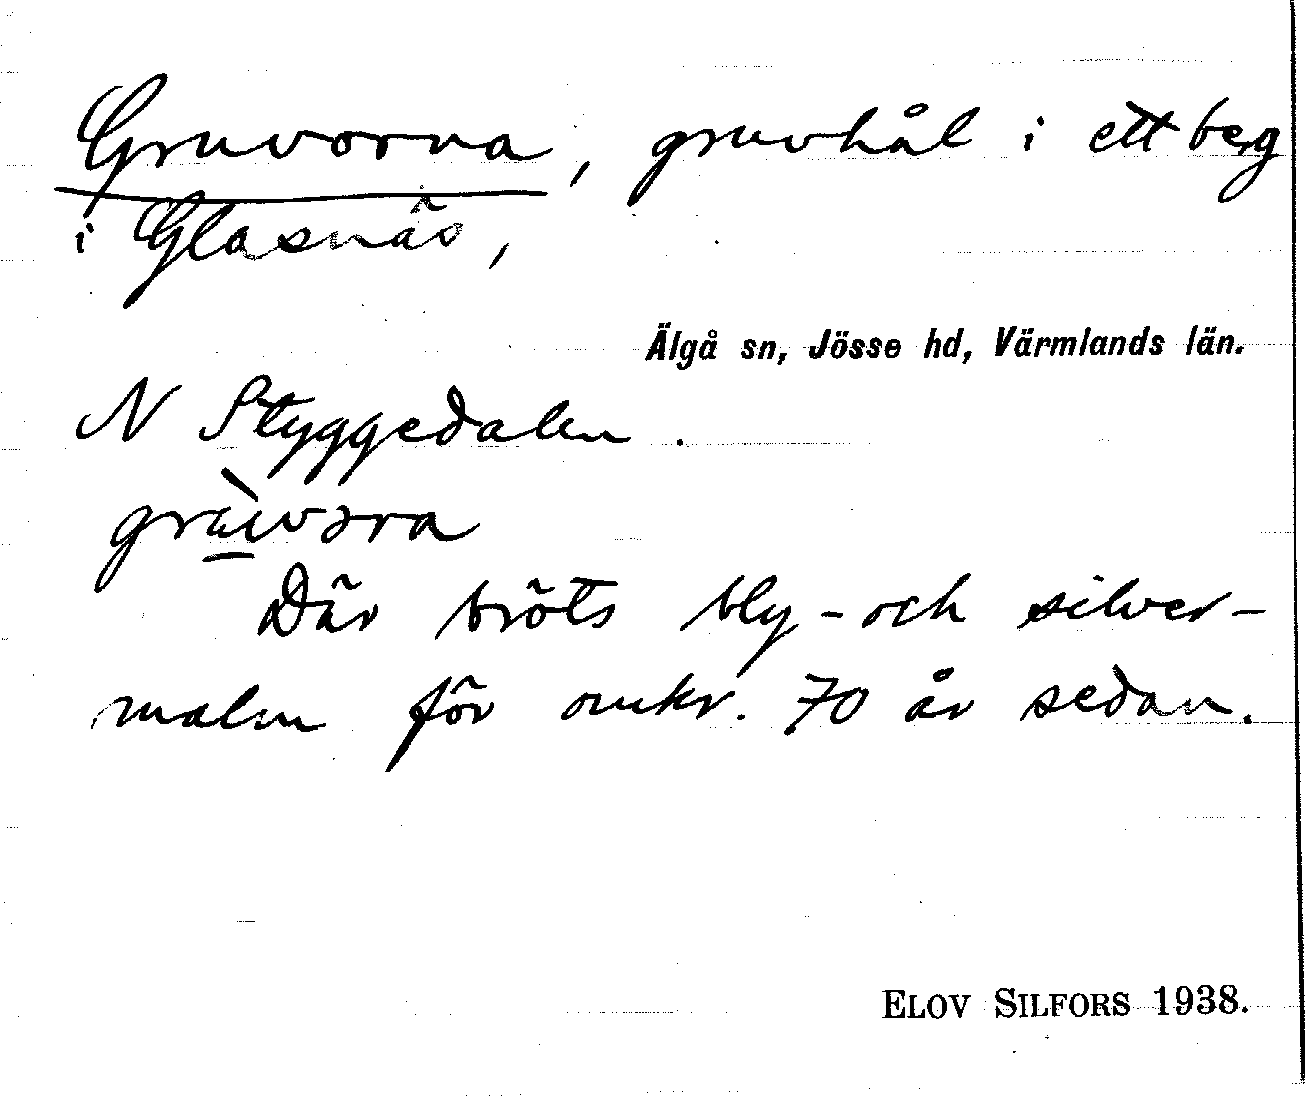 Gruvorna, gruvhål i ett berg
i Glasnäs,
Älgå sn, Jösse hd, Värmlands län.
N Styggedalen.
grùvɔra
Där bröts bly- och silver-
malm för omkr. 70 år sedan.
ELOV SILFORS 1938.